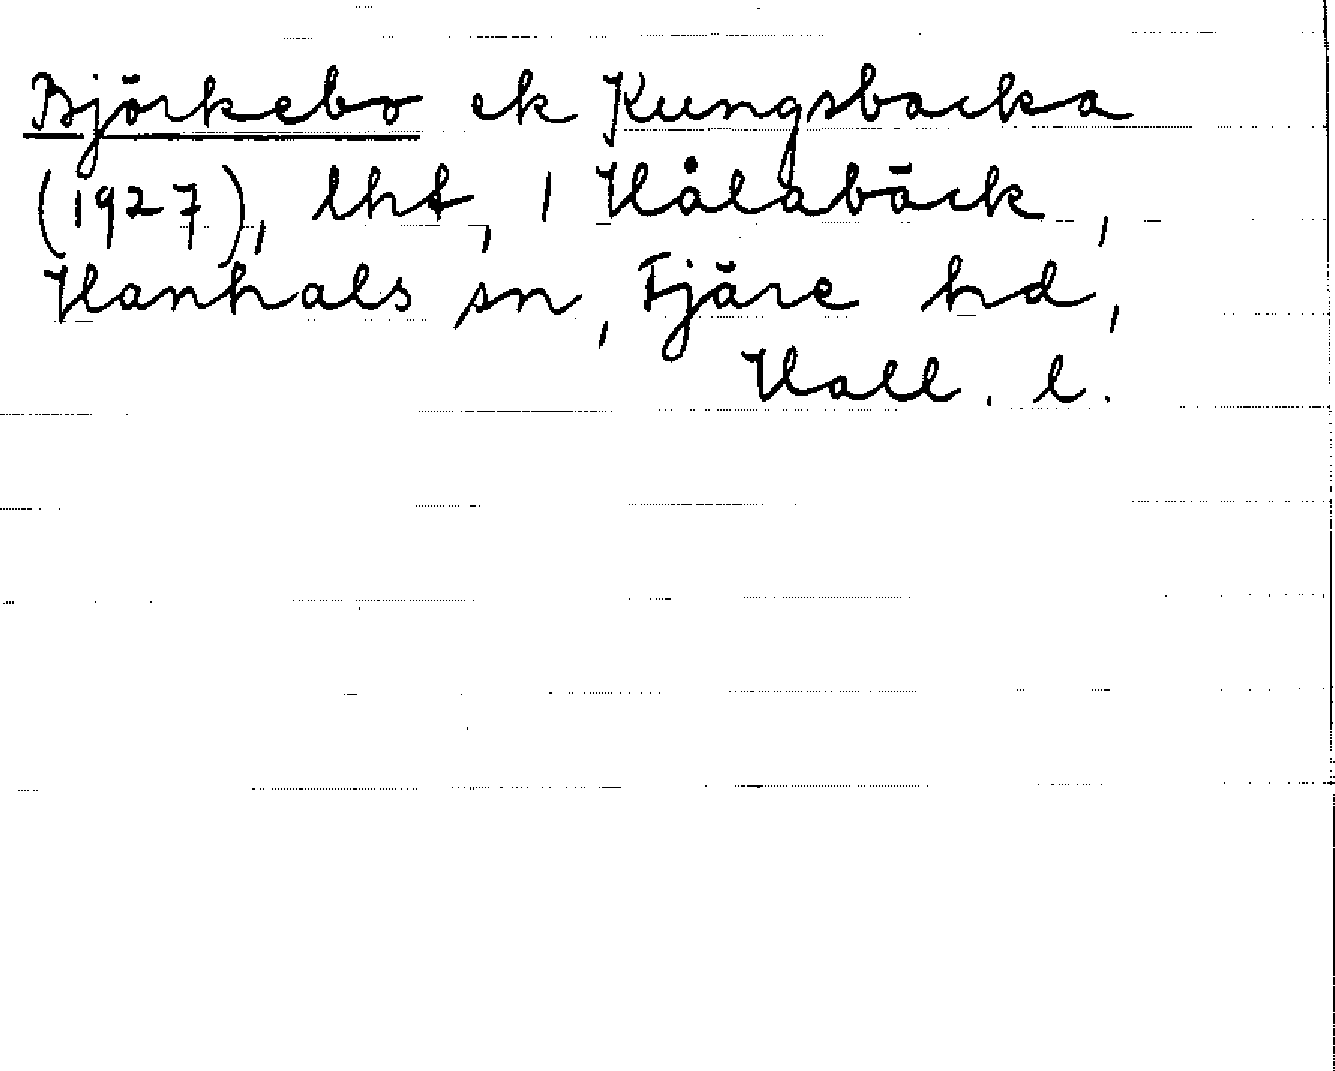 Björkebo ek Kungsbacka
(1927), lht, 1 Hålabäck,
Hanhals sn, Fjäre hd,
Hall. l.